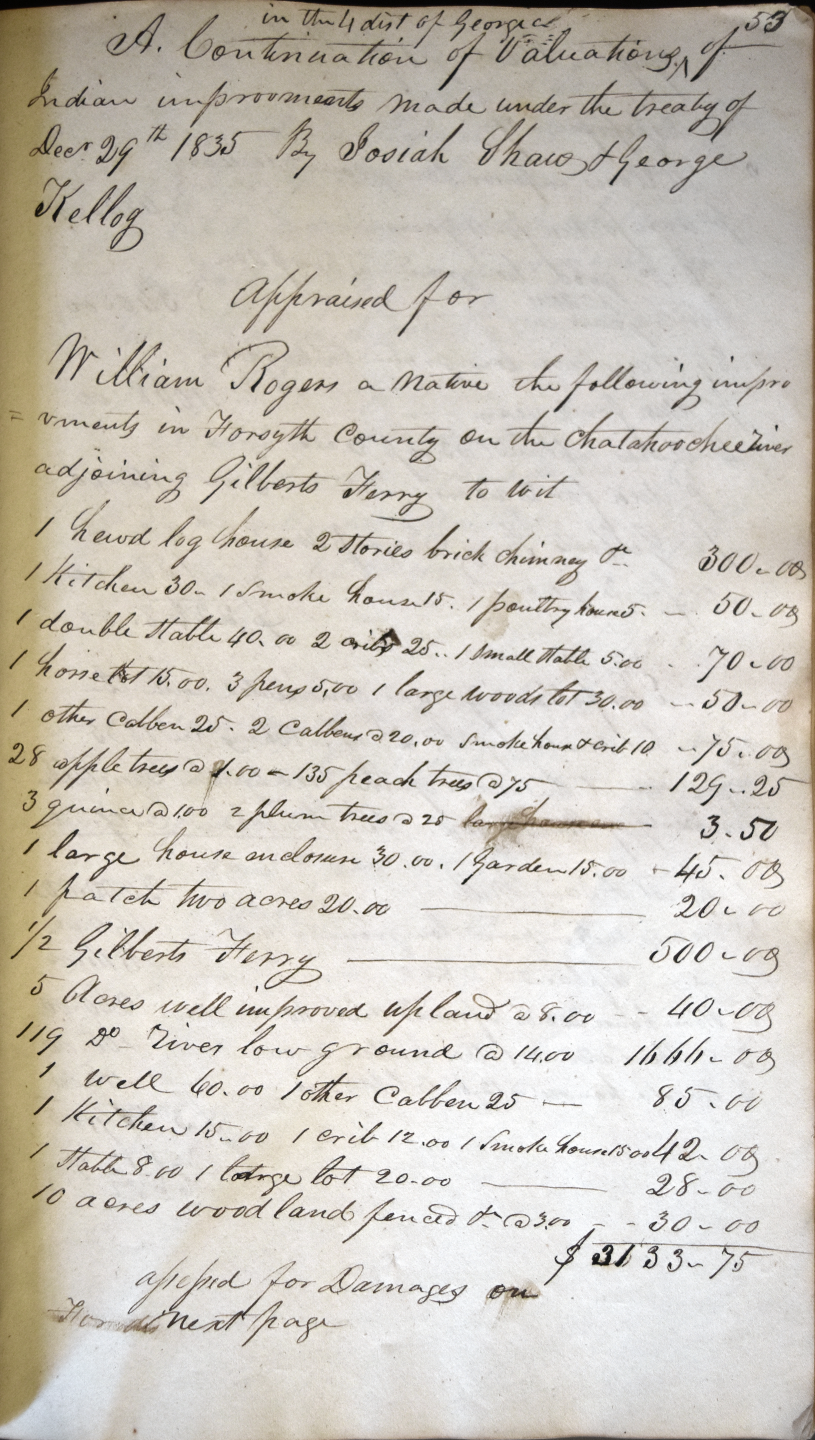 53
in the 4 dist of Georgia
A. Continuation of Valuations, of
Indian improovments made under the treaty of
Decr 29th 1835 By Josiah Shaw & George
Kellog
Appraised for
William Rogers a Native the following impro
= vments in Forsyth County on the Chatahoochee River
adjoining Gilberts Ferry to wit
1 hewd log house 2 Stories brick chimney &c 300-00
1 Kitchen 30- 1 Smoke house 15. 1 poultry house 5. - 50-00
1 double Stable 40.00 2 cribs 25.. 1 Small Stable 5.00 - 70-00
1 horse lot 15.00. 3 pens 5,00 1 large woods lot 30.00 - 50-00
1 other Cabben 25- 2 Cabbens @ 20.00 Smoke house & crib 10 - 75-00
28 apple trees @ 1.00 - 135 peach trees @ 75 129-25
3 quince @ 1.00 2 plum trees @ 25 3-50
1 large house enclosure 30.00. 1 Garden 15.00 - 45-00
1 patch two acres 20.00 20-00
1/2 Gilberts Ferry 500-00
5 Acres well improved up land @ 8.00 - - 40-00
119 Do River low ground @ 14.00 1666-00
1 well 60.00 1 other Cabben 25 - 85-00
1 Kitchen 15-00 1 crib 12.00 1 Smoke house 15.00 42-00
1 Stable 8.00 1 large lot 20.00 28-00
10 acres wood land fenced &c @ 3.00 - - 30-00
$ 3133-75
assessed for Damages on
next page